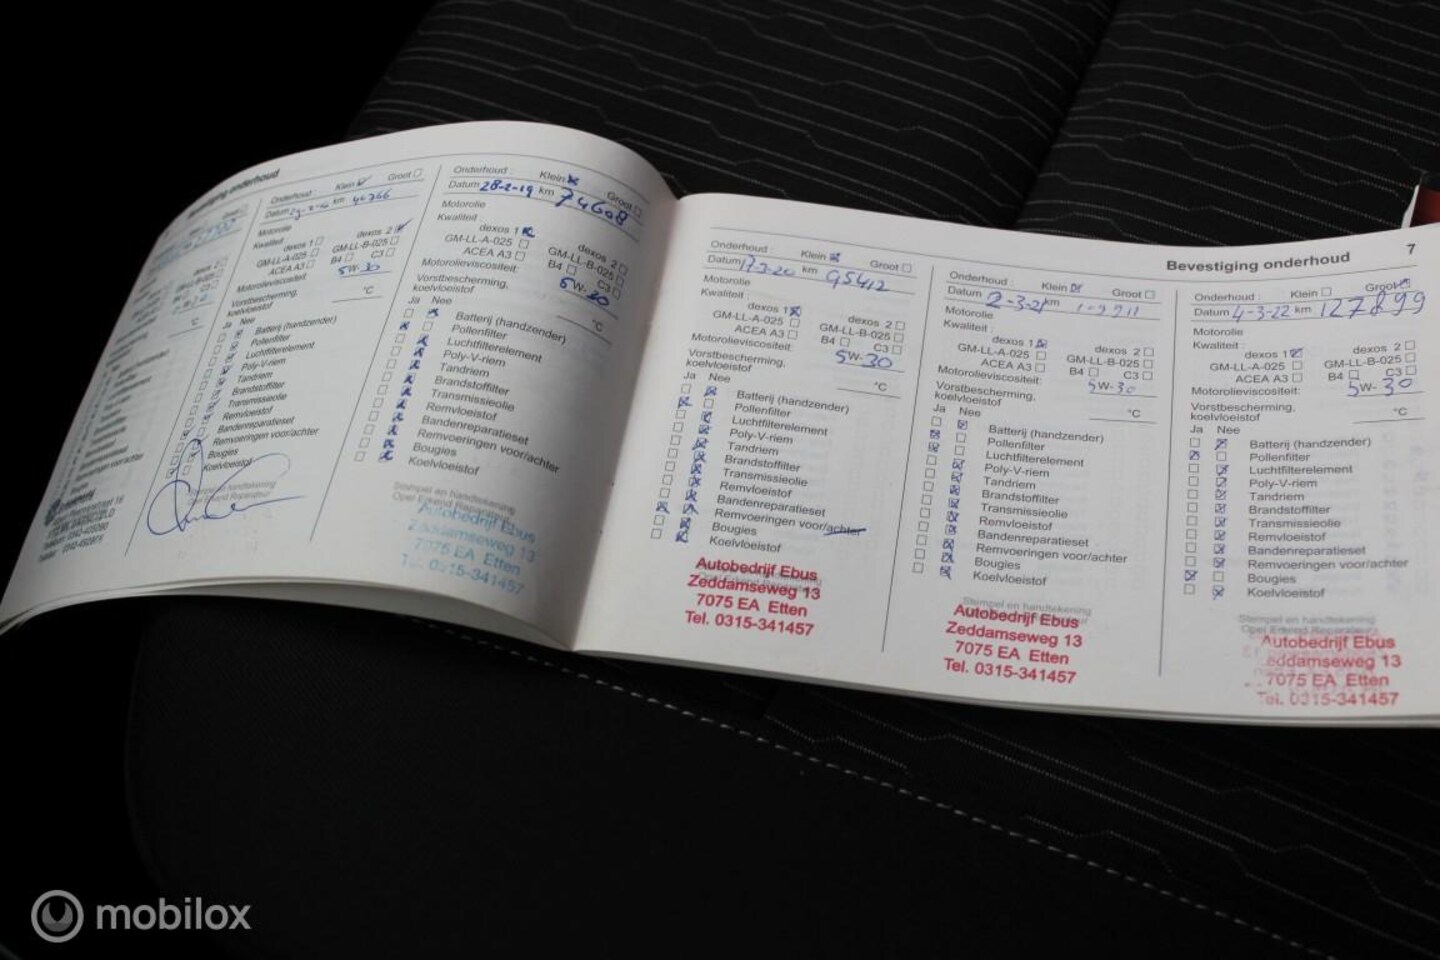 Bevestiging onderhoud
Onderhoud : Klein Groot
Datum km
Motorolie
Kwaliteit :
dexos 1 dexos 2
GM-LL-A-025 GM-LL-B-025
ACEA A3 B4 C3
Motorolieviscositeit: 5W-30
Vorstbescherming,
koelvloeistof °C
Ja Nee
Batterij (handzender)
Pollenfilter
Luchtfilterelement
Poly-V-riem
Tandriem
Brandstoffilter
Transmissieolie
Remvloeistof
Bandenreparatieset
Remvoeringen voor/achter
Bougies
Koelvloeistof
Onderhoud : Klein Groot
Datum 28-2-19 km 74608
Motorolie
Kwaliteit :
dexos 1 dexos 2
GM-LL-A-025 GM-LL-B-025
ACEA A3 B4 C3
Motorolieviscositeit: 5W-30
Vorstbescherming,
koelvloeistof °C
Ja Nee
Batterij (handzender)
Pollenfilter
Luchtfilterelement
Poly-V-riem
Tandriem
Brandstoffilter
Transmissieolie
Remvloeistof
Bandenreparatieset
Remvoeringen voor/achter
Bougies
Koelvloeistof
Stempel en handtekening
Autobedrijf Ebus
Zeddamseweg 13
7075 EA Etten
Tel. 0315-341457
Onderhoud : Klein Groot
Datum 17-3-20 km 95412
Motorolie
Kwaliteit :
dexos 1 dexos 2
GM-LL-A-025 GM-LL-B-025
ACEA A3 B4 C3
Motorolieviscositeit: 5W-30
Vorstbescherming,
koelvloeistof °C
Ja Nee
Batterij (handzender)
Pollenfilter
Luchtfilterelement
Poly-V-riem
Tandriem
Brandstoffilter
Transmissieolie
Remvloeistof
Bandenreparatieset
Remvoeringen voor/achter
Bougies
Koelvloeistof
Autobedrijf Ebus
Zeddamseweg 13
7075 EA Etten
Tel. 0315-341457
Onderhoud : Klein Groot
Datum 2-3-21 km
Motorolie
Kwaliteit :
dexos 1 dexos 2
GM-LL-A-025 GM-LL-B-025
ACEA A3 B4 C3
Motorolieviscositeit: 5W-30
Vorstbescherming,
koelvloeistof °C
Ja Nee
Batterij (handzender)
Pollenfilter
Luchtfilterelement
Poly-V-riem
Tandriem
Brandstoffilter
Transmissieolie
Remvloeistof
Bandenreparatieset
Remvoeringen voor/achter
Bougies
Koelvloeistof
Stempel en handtekening
Autobedrijf Ebus
Zeddamseweg 13
7075 EA Etten
Tel. 0315-341457
Bevestiging onderhoud 7
Onderhoud : Klein Groot
Datum 4-3-22 km 127899
Motorolie
Kwaliteit :
dexos 1 dexos 2
GM-LL-A-025 GM-LL-B-025
ACEA A3 B4 C3
Motorolieviscositeit: 5W-30
Vorstbescherming,
koelvloeistof °C
Ja Nee
Batterij (handzender)
Pollenfilter
Luchtfilterelement
Poly-V-riem
Tandriem
Brandstoffilter
Transmissieolie
Remvloeistof
Bandenreparatieset
Remvoeringen voor/achter
Bougies
Koelvloeistof
Stempel en handtekening
Autobedrijf Ebus
eddamseweg 13
7075 EA Etten
Tel. 0315-341457
mobilox